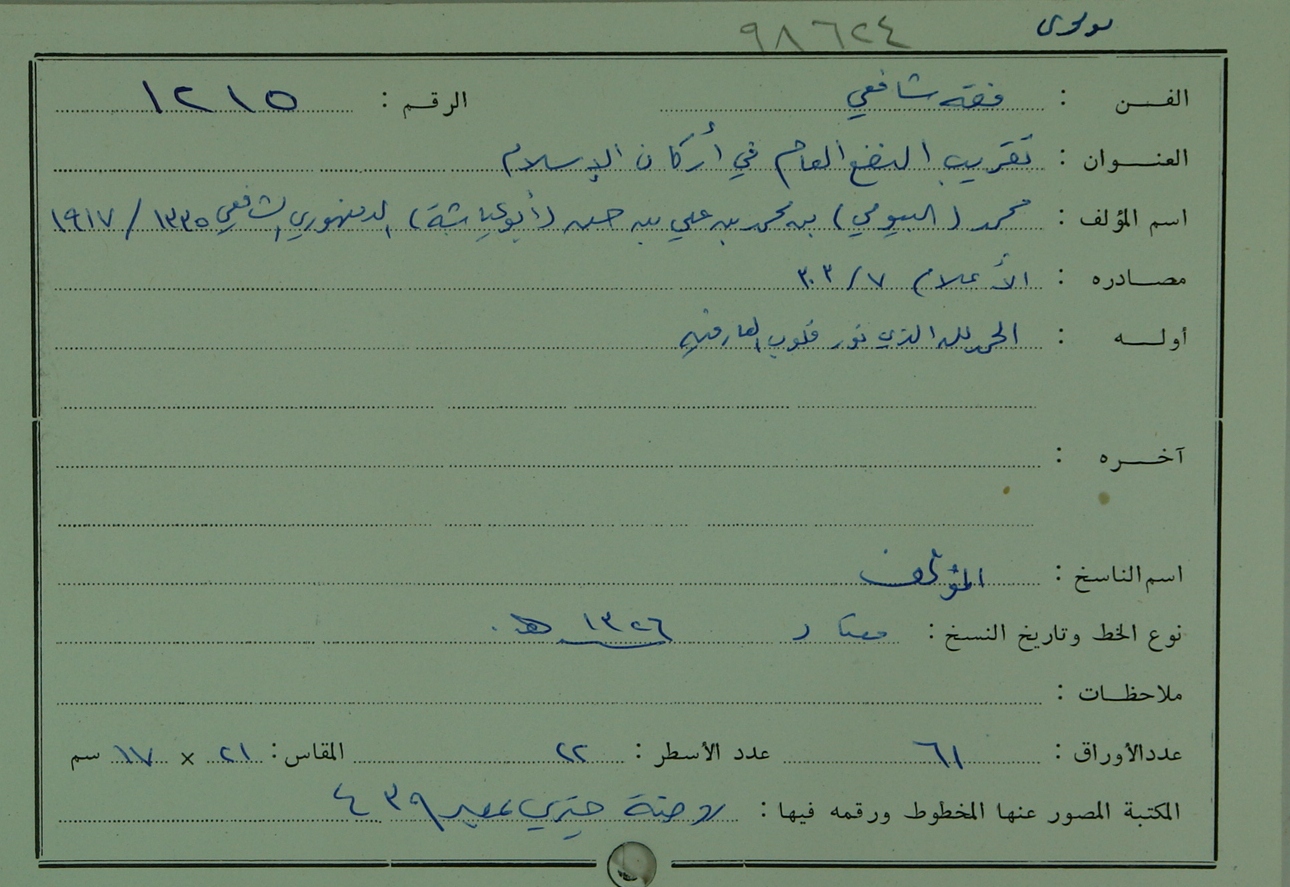 ٩٨٦٢٤
الفن : فقه شافعي الرقم : ١٢١٥
العنوان : تقريب النفع العام في أركان الإسلام
اسم المؤلف : محمد (البيومي) بن محمد بن علي بن حسن (أبو عياشة) الدمنهوري الشافعي ١٣٣٥ / ١٩١٧
مصادره : الأعلام ٧/ ٣٠٣
أوله : الحمد لله الذي نور قلوب العارفين
آخره :
اسم الناسخ : المؤلف
نوع الخط وتاريخ النسخ : معتاد ١٣٢٦ هـ.
ملاحظات :
عدد الأوراق : ٦١ عدد الأسطر : ٢٢ المقاس : ٢١ × ١٧ سم
المكتبة المصور عنها المخطوط ورقمه فيها : روضة خيري ٤٣٩